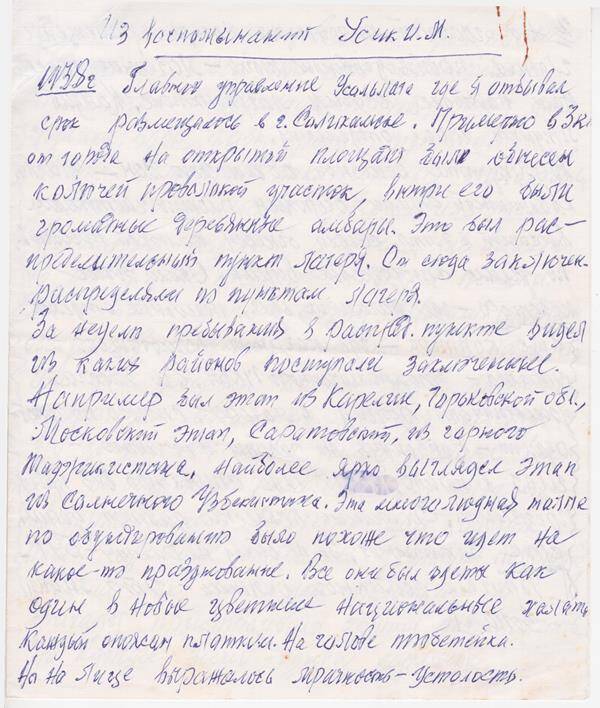 Из воспоминаний Усик И.М.
1938г Главное управление Усольлага где я отбывал
срок размещалось в г. Саликамске. Примерно в 3х
от города на открытой площади было обнесен
колючей проволокой участок, внутри его были
громатные деревянные амбары. Это был рас-
пределительный пункт лагеря. От сюда заключен.
распределяли по пунктам лагеря.
За неделю пребывания в распред. пункте видел
из каких районов поступали заключенные.
Например был этап из Карелии, Горьковской обл.,
Московский этап, Саратовский, из горного
Таджикистана, наиболее ярко выглядел этап
из солнечного Узбекистана. Эта многолюдная толпа
по обмундированию было похоже что идет на
какое-то празднование. Все они был одеты как
один в новые цветные национальные халаты
каждый опоясан платком. На голове тюбетейка.
Но на лице выражалось мрачность-усталость.